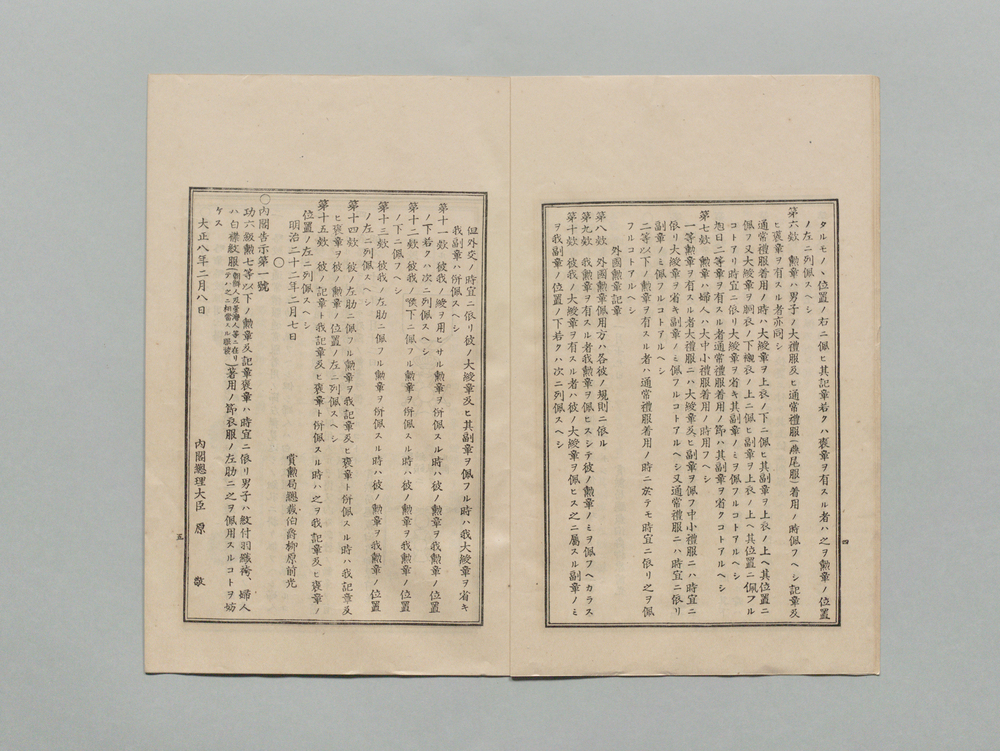 タルモノヽ位置ノ右ニ佩ヒ其記章若クハ褒章ヲ有スル者ハ之ヲ勲章ノ位置
ノ左ニ列佩スヘシ
第六欵　勲章ハ男子ノ大禮服及ヒ通常禮服(燕尾服)着用ノ時佩フヘシ記章及
ヒ褒章ヲ有スル者亦同シ
通常禮服着用ノ時ハ大綬章ヲ上衣ノ下ニ佩ヒ其副章ヲ上衣ノ上ヘ其位置ニ
佩フ又大綬章ヲ胴衣ノ下襯衣ノ上ニ佩ヒ副章ヲ上衣ノ上ヘ其位置ニ佩フル
コトアリ時宜ニ依リ大綬章ヲ省キ其副章ノミヲ佩フルコトアルヘシ
旭日二等章ヲ有スル者通常禮服着用ノ節ハ其副章ヲ省クコトアルヘシ
第七欵　勲章ハ婦人ハ大中小禮服着用ノ時用フヘシ
一等勲章ヲ有スル者大禮服ニハ大綬章及ヒ副章ヲ佩フ中小禮服ニハ時宜ニ
依リ大綬章ヲ省キ副章ノミ佩フルコトアルヘシ又通常禮服ニハ時宜ニ依リ
副章ノミ佩フルコトアルヘシ
二等以下ノ勲章ヲ有スル者ハ通常禮服着用ノ時ニ於テモ時宜ニ依リ之ヲ佩
フルコトアルヘシ
外國勲章記章
第八欵　外國勲章佩用方ハ各彼ノ規則ニ依ル
第九欵　我勲章ヲ有スル者我勲章ヲ佩ヒスシテ彼ノ勲章ノミヲ佩フヘカラス
第十欵　彼我ノ大綬章ヲ有スル者ハ彼ノ大綬章ヲ佩ヒス之ニ屬スル副章ノミ
ヲ我副章ノ位置ノ下若クハ次ニ列佩スヘシ
四
但外交ノ時宜ニ依リ彼ノ大綬章及ヒ其副章ヲ佩フル時ハ我大綬章ヲ省キ
我副章ハ併佩スヘシ
第十一欵　彼我ノ綬ヲ用ヒサル勲章ヲ併佩スル時ハ彼ノ勲章ヲ我勲章ノ位置
ノ下若クハ次ニ列佩スヘシ
第十二欵　彼我ノ喉下ニ佩フル勲章ヲ併佩スル時ハ彼ノ勲章ヲ我勲章ノ位置
ノ下ニ佩フヘシ
第十三欵　彼我ノ左肋ニ佩フル勲章ヲ併佩スル時ハ彼ノ勲章ヲ我勲章ノ位置
ノ左ニ列佩スヘシ
第十四欵　彼ノ左肋ニ佩フル勲章ヲ我記章及ヒ褒章ト併佩スル時ハ我記章及
ヒ褒章ヲ彼ノ勲章ノ位置ノ左ニ列佩スヘシ
第十五欵　彼ノ記章ト我記章及ヒ褒章ト併佩スル時ハ之ヲ我記章及ヒ褒章ノ
位置ノ左ニ列佩スヘシ
明治二十二年二月七日　賞勲局總裁伯爵柳原前光
〇
〇內閣告示第一號
功六級勲七等以下ノ勲章及記章褒章ハ時宜ニ依リ男子ハ紋付羽織袴、婦人
ハ白襟紋服(朝鮮人及臺灣人等ニ在リテハ之ニ相當スル服裝)着用ノ節衣服ノ左肋ニ之ヲ佩用スルコトヲ妨
ケス
大正八年二月八日
內閣總理大臣　原　敬
五